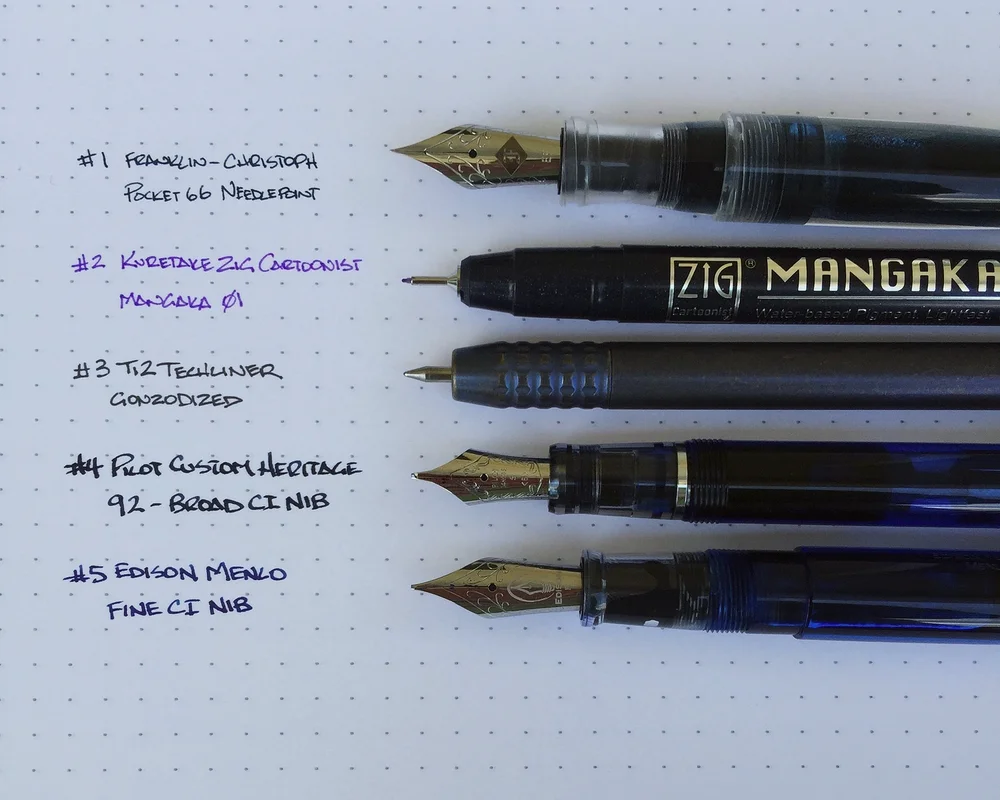 #1 FRANKLIN-CHRISTOPH
POCKET 66 NEEDLEPOINT
#2 KURETAKE ZIG CARTOONIST
MANGAKA 01
#3 Ti2 TECHLINER
GONZODIZED
#4 PILOT CUSTOM HERITAGE
92 - BROAD CI NIB
#5 EDISON MENLO
FINE CI NIB
ZIG ® MANGAKA
Cartoonist
Water-based Pigment, Lightfast